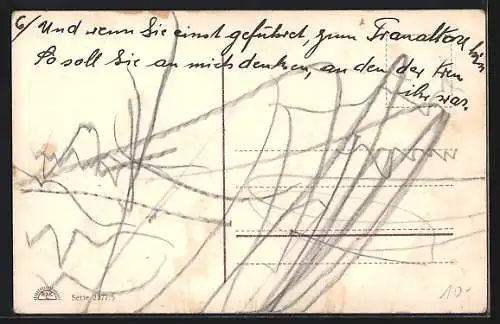 6/ Und wenn Sie einst geführet, zum Traualtare hin
So soll Sie an mich denken, an den der treu
ihr war.
Serie 2377/5
10.-